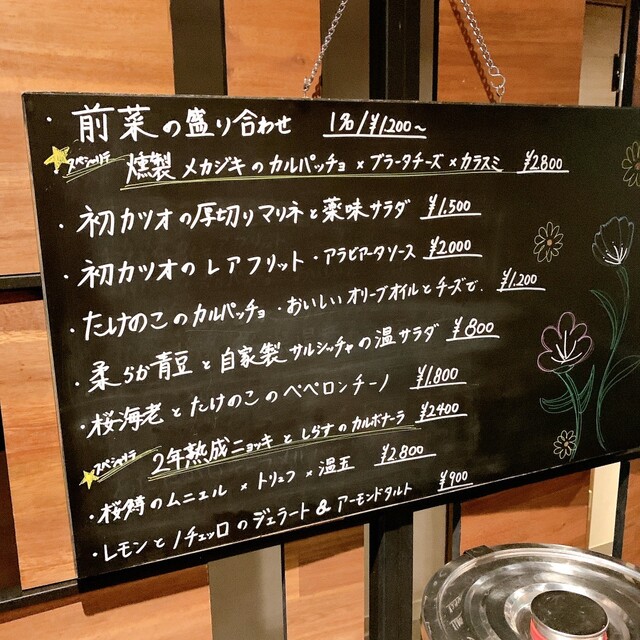 ・前菜の盛り合わせ 1名/¥1,200〜
スペシャリテ 燻製メカジキのカルパッチョ×ブラータチーズ×カラスミ ¥2800
・初カツオの厚切りマリネと薬味サラダ ¥1,500
・初カツオのレアフリット・アラビアータソース ¥2000
・たけのこのカルパッチョ・おいしいオリーブオイルとチーズで ¥1,200
・柔らか青豆と自家製サルシッチャの温サラダ ¥800
・桜海老とたけのこのペペロンチーノ ¥1,800
スペシャリテ 2年熟成ニョッキとしらすのカルボナーラ ¥2400
・桜鱒のムニエル×トリュフ×温玉 ¥2,800
・レモンとノチェッロのジェラート&アーモンドタルト ¥900